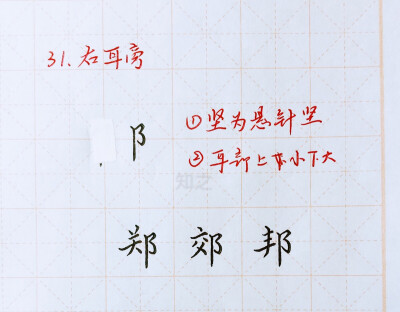 31.右耳旁
阝
①坚为悬针坚
②耳部上小下大
知乏
郑 郊 邦